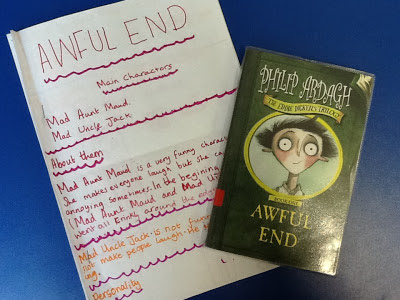 AWFUL END
Main Charactors
Mad Aunt Maud.
Mad Uncle Jack
About them
Mad Aunt Maud is a very funny charact
She makes everyone laugh but she ca
annoying sometimes. In the begining
(Mad Aunt Maud and Mad U
went all crinkly around the edge
Mad Uncle Jack is not funn
not make people laugh. He
ing.
Personality
PHILIP ARDAGH
THE EDDIE DICKENS TRILOGY
BOOK ONE
AWFUL
END